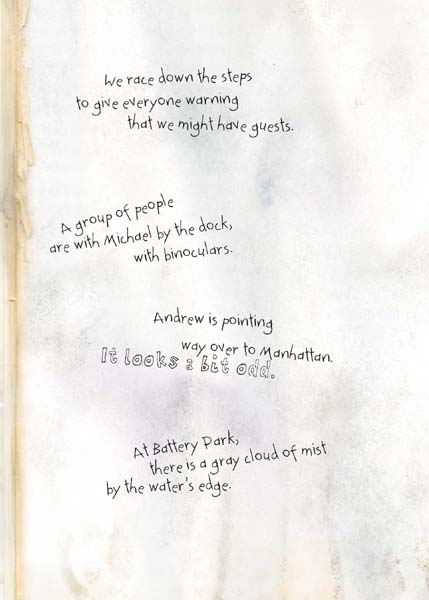 We race down the steps
to give everyone warning
that we might have guests.
A group of people
are with Michael by the dock,
with binoculars.
Andrew is pointing
way over to Manhattan.
It looks a bit odd.
At Battery Park,
there is a gray cloud of mist
by the water's edge.